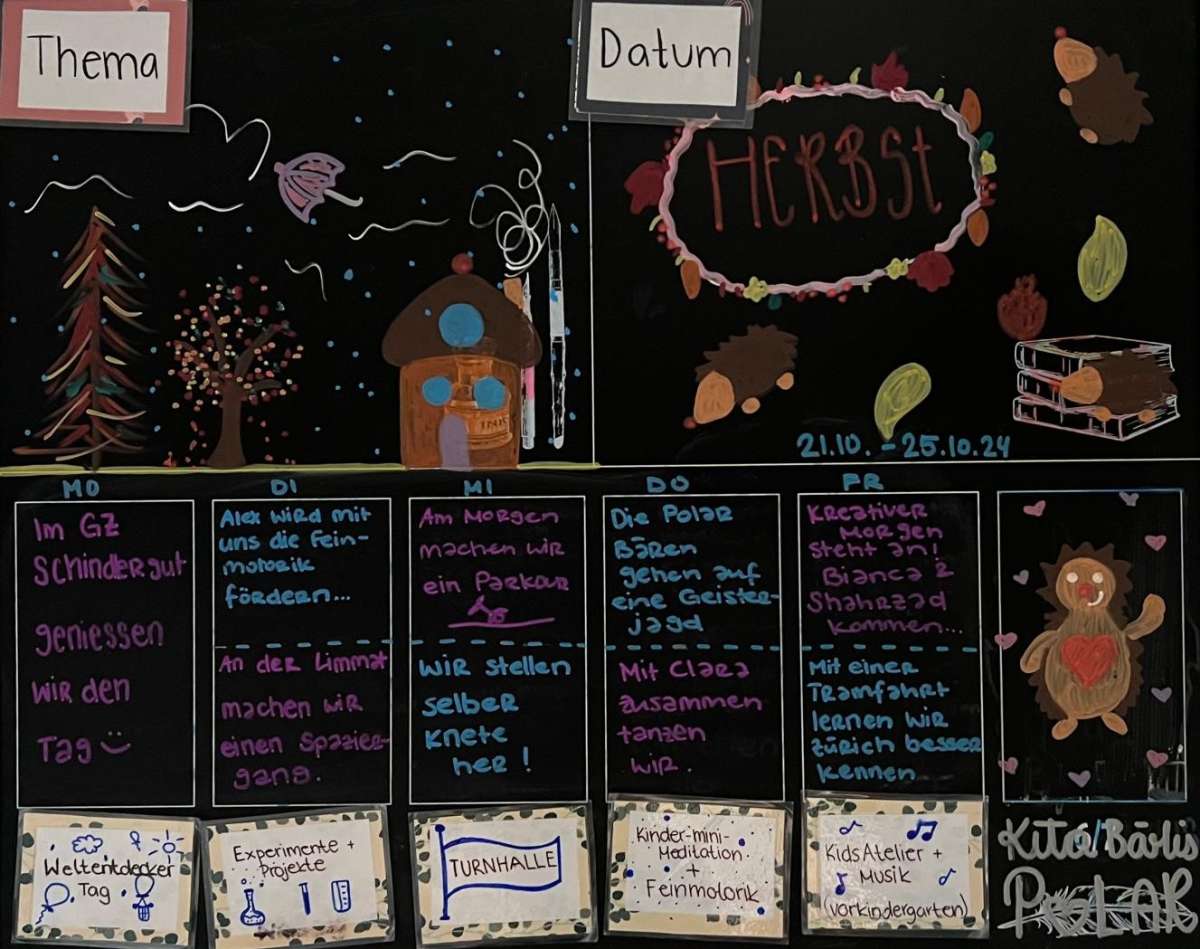 Thema
Datum
HERBSt
21.10. - 25.10.24
MO
DI
MI
DO
FR
Im GZ
Schindergut
geniessen
wir den
Tag
Alex wird mit
uns die Fein-
motorik
fördern...
An der Limmat
machen wir
einen Spazier-
gang.
Am Morgen
machen wir
ein Parkour
Wir stellen
selber
Knete
her!
Die Polar
Bären
gehen auf
eine Geister-
jagd
Mit Clara
zusammen
tanzen
wir.
Kreativer
Morgen
steht an!
Bianca &
Shahrzad
kommen...
Mit einer
Tramfahrt
lernen wir
Zürich besser
kennen
Weltentdecker
Tag
Experimente +
Projekte
TURNHALLE
Kinder-mini-
Meditation
+
Feinmotorik
Kids Atelier +
Musik
(vorkindergarten)
Kita Bärlis
POLAR